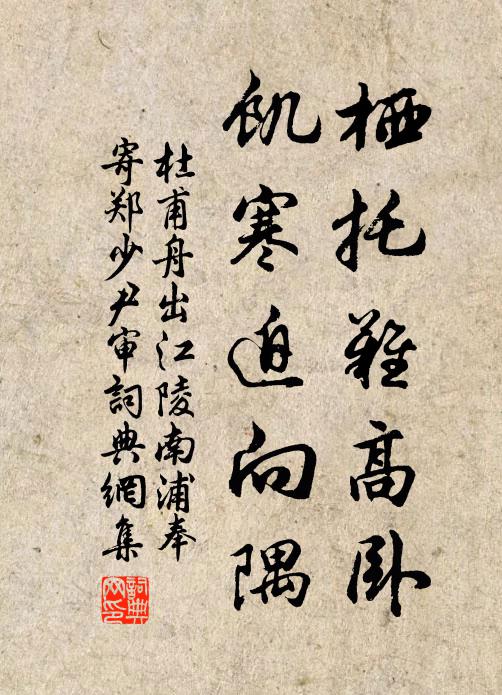 栖托難高卧
飢寒迫向隅
杜甫舟出江陵南浦奉
寄郑少尹审詞典網集
詞典网印